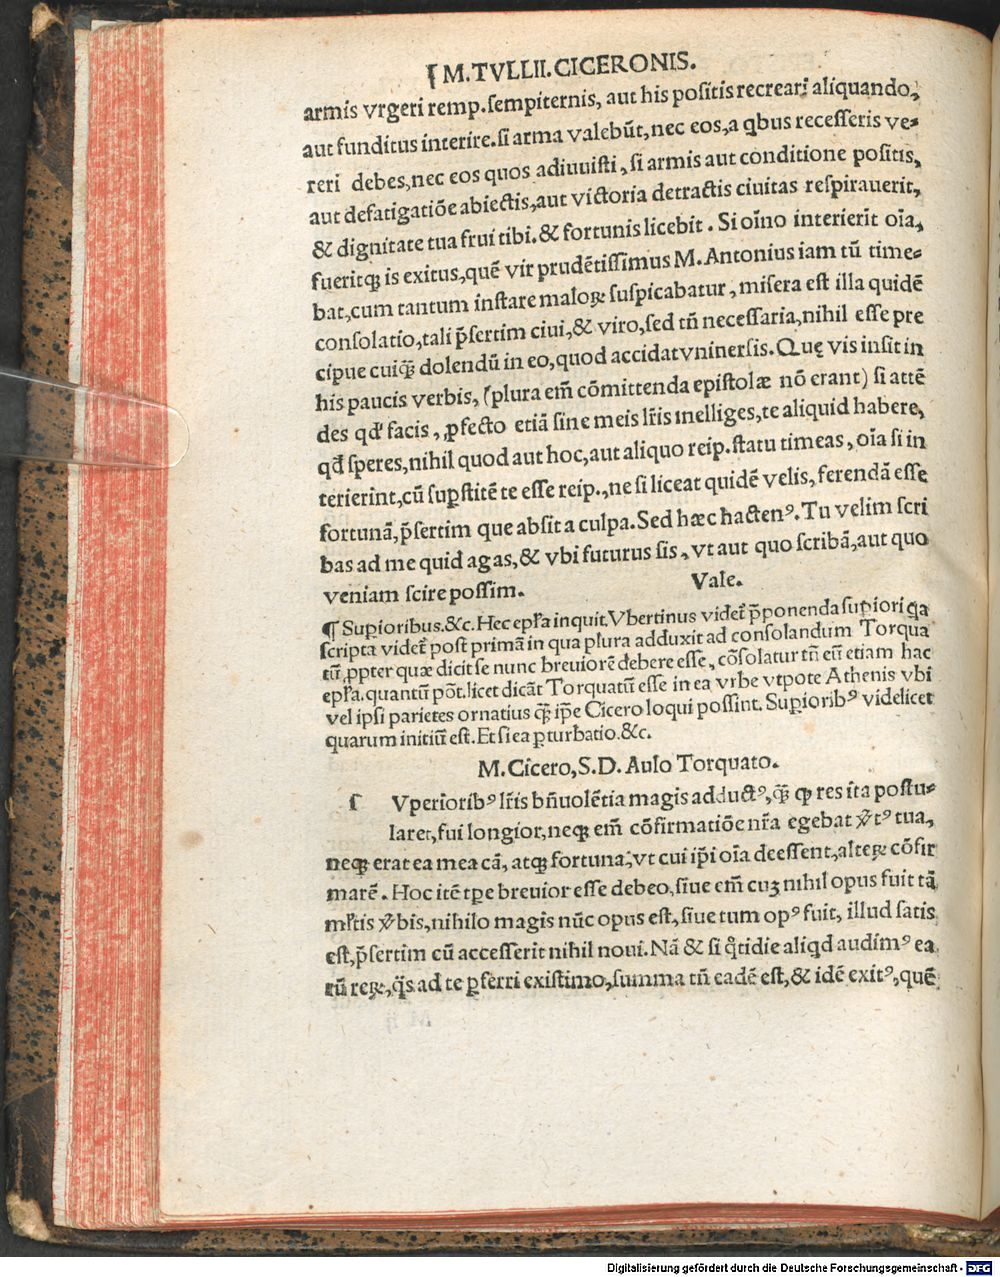 ¶ M. TVLLII. CICERONIS.
armis vrgeri remp. sempiternis, aut his positis recreari aliquando,
aut funditus interire. si arma valebūt, nec eos, a q̇bus recesseris ve⸗
reri debes, nec eos quos adiuuisti, si armis aut conditione positis,
aut defatigatiōe abiectis, aut victoria detractis ciuitas respirauerit,
& dignitate tua frui tibi. & fortunis licebit. Si oīno interierit oīa,
fueritqꝫ is exitus, quē vir prudētissimus M. Antonius iam tū time⸗
bat, cum tantum instare maloꝝ suspicabatur, misera est illa quidē
consolatio, tali p̄sertim ciui, & viro, sed tn̄ necessaria, nihil esse pre
cipue cuiq̄ꝫ dolendū in eo, quod accidat vninersis. Quę vis insit in
his paucis verbis, (plura em̄ cōmittenda epistolæ nō erant) si attē
des qd' facis, ꝓfecto etiā sine meis lr̄is inelliges, te aliquid habere,
qd̄ speres, nihil quod aut hoc, aut aliquo reip. statu timeas, oīa si in
terierint, cū suꝑstitē te esse reip., ne si liceat quidē velis, ferendā esse
fortunā, p̄sertim que absit a culpa. Sed hæc hactenꝰ. Tu velim scri
bas ad me quid agas, & vbi futurus sis, vt aut quo scribā, aut quo
veniam scire possim. Vale.
¶ Suꝑioribus. &c. Hec epľa inquit. Vbertinus videt̄ p̄ponenda suꝑiori q̇a
scripta videt̄ post primā in qua plura adduxit ad consolandum Torqua
tū, ꝓpter quæ dicit se nunc breuiorē debere esse, cōsolatur tn̄ eū etiam hac
epľa. quantū pōt. licet dicāt Torquatū esse in ea vrbe vtpote Athenis vbi
vel ipsi parietes ornatius q̄ꝫ ip̄e Cicero loqui possint. Suꝑioribꝰ videlicet
quarum initiū est. Et si ea ꝑturbatio. &c.
M. Cicero, S. D. Aulo Torquato.
ſ Vperioribꝰ lr̄is bn̄uolētia magis adductꝰ, q̄ꝫ ꝙ res ita postu⸗
laret, fui longior, neqꝫ em̄ cōfirmatiōe nr̄a egebat v̓tꝰ tua,
neqꝫ erat ea mea cā, atqꝫ fortuna, vt cui ip̄i oīa deessent, alteꝝ cōfir
marē. Hoc itē tꝑe breuior esse debeo, siue em̄ cuꝫ nihil opus fuit tā
ml̓tis v̓bis, nihilo magis nūc opus est, siue tum opꝰ fuit, illud satis
est, p̄sertim cū accesserit nihil noui. Nā & si q̊tidie aliq̇d audimꝰ ea
tū reꝝ, q̄s ad te ꝑferri existimo, summa tn̄ eadē est, & idē exitꝰ, quē
Digitalisierung gefördert durch die Deutsche Forschungsgemeinschaft - DFG